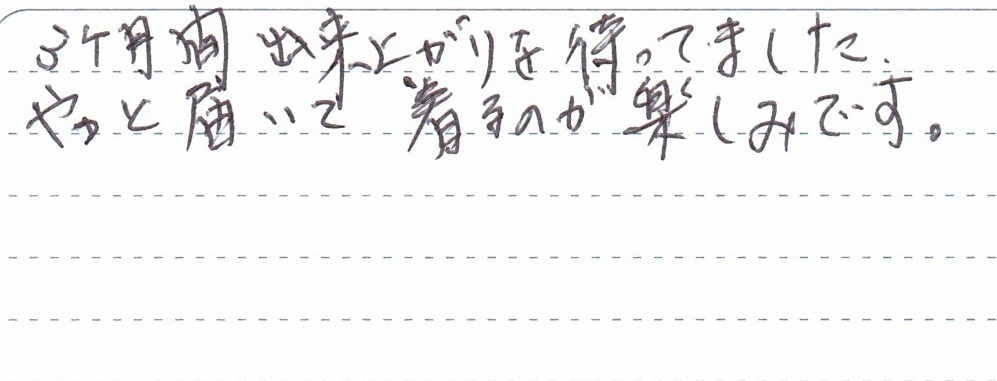 3ケ月間 出来上がりを待ってました.
やっと届いて 着るのが楽しみです。